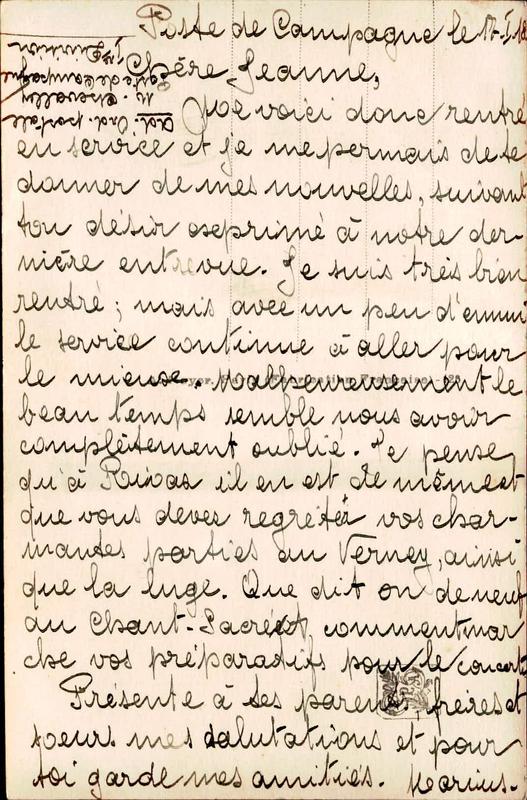 Poste de Campagne le 17. I. 18
Chère Jeanne,
Me voici donc rentré
en service et je me permais de te
donner de mes nouvelles, suivant
ton désir exprimé à notre der-
nière entrevue. Je suis très bien
rentré; mais avec un peu d'ennui
le service continue à aller pour
le mieux. Malheureusement le
beau temps semble nous avoir
complètement oublié. Je pense
qu'à Rivas il en est de même et
que vous devez regreter vos char-
mantes parties au Verney, ainsi
que la luge. Que dit on de neuf
au Chant-Sacré et comment mar
che vos préparatifs pour le concert
Présente à tes parents, frères et
soeurs mes salutations et pour
toi garde mes amitiés. Marius.
Ord. postal
M. Chevalley
Poste de Campagne
1re Division